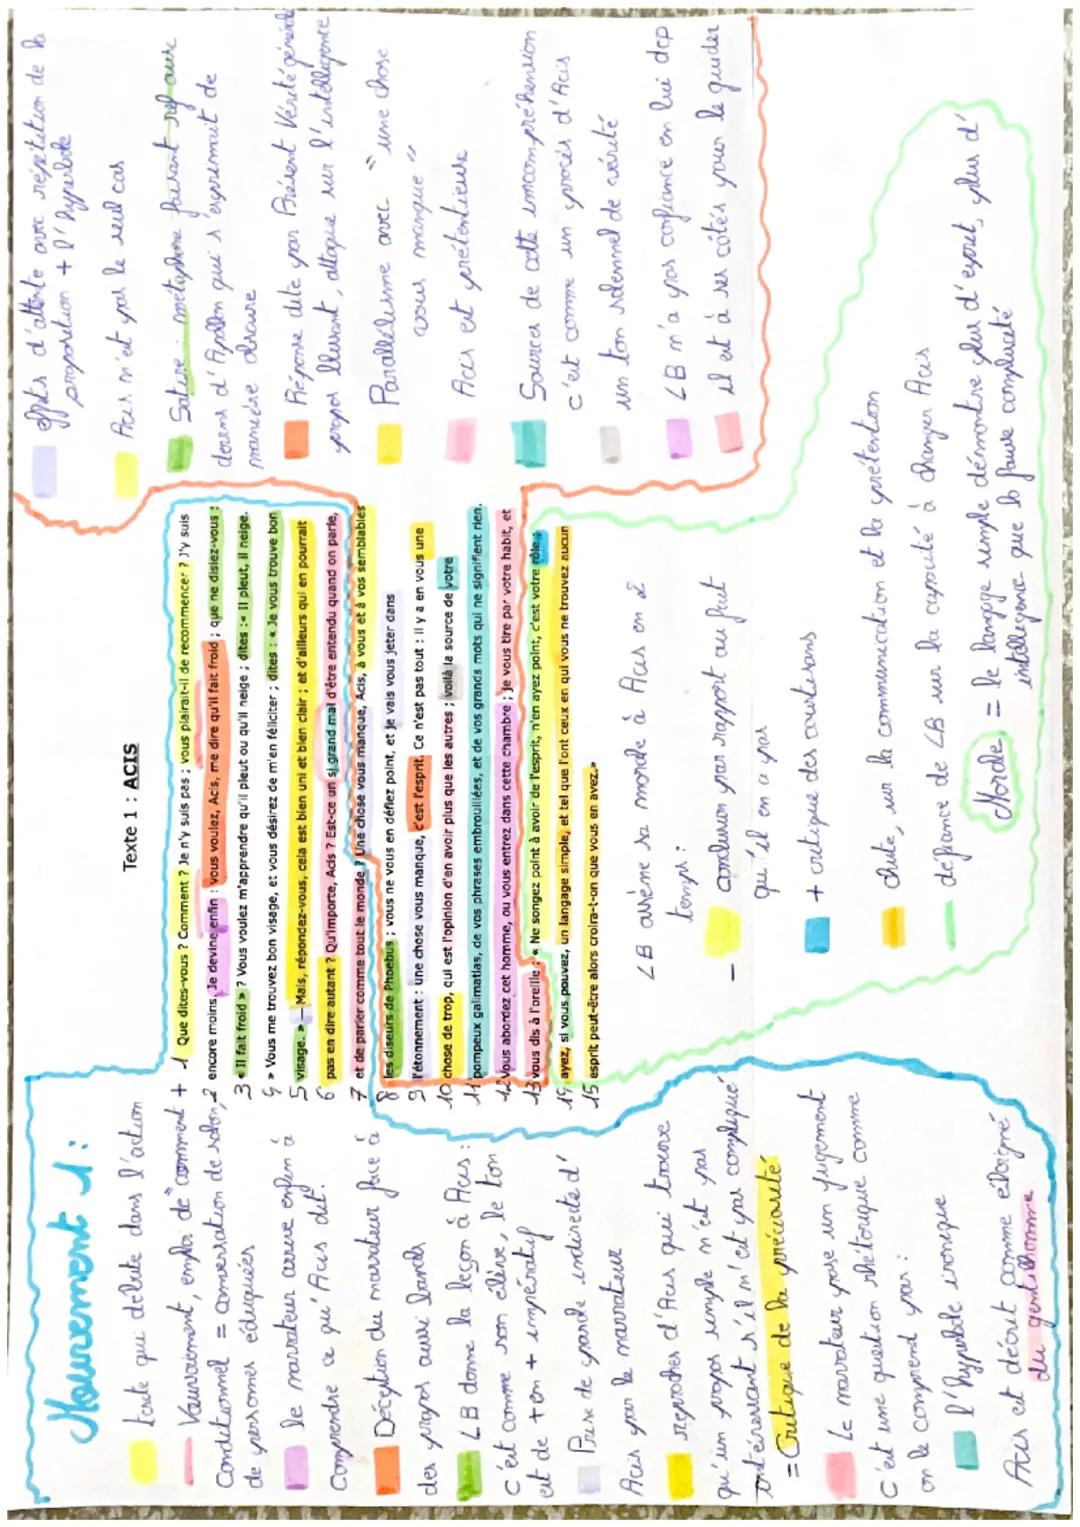 Texte 1 : ACIS
1 Que dites-vous ? Comment ? Je n'y suis pas ; vous plairait-il de recommencer ? J'y suis
2 encore moins. Je devine enfin : vous voulez, Acis, me dire qu'il fait froid ; que ne disiez-vous :
3 « Il fait froid » ? Vous voulez m'apprendre qu'il pleut ou qu'il neige ; dites : « Il pleut, il neige.
4 » Vous me trouvez bon visage, et vous désirez de m'en féliciter ; dites : « Je vous trouve bon
5 visage. » — Mais, répondez-vous, cela est bien uni et bien clair ; et d'ailleurs qui en pourrait
6 pas en dire autant ? Qu'importe, Acis ? Est-ce un si grand mal d'être entendu quand on parle,
7 et de parler comme tout le monde ? Une chose vous manque, Acis, à vous et à vos semblables
8 les diseurs de Phoebus ; vous ne vous en défiez point, et je vais vous jeter dans
9 l'étonnement : une chose vous manque, c'est l'esprit. Ce n'est pas tout : il y a en vous une
10 chose de trop, qui est l'opinion d'en avoir plus que les autres ; voilà la source de votre
11 pompeux galimatias, de vos phrases embrouillées, et de vos grands mots qui ne signifient rien.
12 Vous abordez cet homme, ou vous entrez dans cette chambre ; je vous tire par votre habit, et
13 vous dis à l'oreille : « Ne songez point à avoir de l'esprit, n'en ayez point, c'est votre rôle ;
14 ayez, si vous pouvez, un langage simple, et tel que l'ont ceux en qui vous ne trouvez aucun
15 esprit peut-être alors croira-t-on que vous en avez.»
Mouvement 1 :
texte qui débute dans l'action
Vouvoiement, emploi de "comment" +
Conditionnel = conversation de salon,
de personnes éduquées
le narrateur arrive enfin à
Comprendre ce qu'Acis dit.
Déception du narrateur face à
des propos aussi banals
LB donne la leçon à Acis :
c'est comme son élève, le ton
est de + en + impératif
Prise de parole indirecte d'
Acis par le narrateur
reproches d'Acis qui trouve
qu'un propos simple n'est pas
intéressant s'il n'est pas compliqué
= Critique de la préciosité
Le narrateur pose un jugement
C'est une question rhétorique comme
on le comprend par :
l'hyperbole ironique
Acis est décrit comme éloigné
du gentilhomme
effets d'attente avec répétition de la
proposition + l'hyperbole
Acis n'est pas le seul cas
Satire : métaphore faisant ref aux
devins d'Apollon qui s'exprimait de
manière obscure
Réponse dite par Présent Vérité générale
propos blessant, attaque sur l'intelligence
Parallélisme avec "une chose
vous manque"
Acis est prétentieux
Sources de cette incompréhension
c'est comme un procès d'Acis
un ton solennel de vérité
LB n'a pas confiance en lui dcp
il est à ses côtés pour le guider
LB assène sa morale à Acis en 2
temps :
- conclusion par rapport au fait
qu'il en a pas
+ critique des courtisans
chute, sur la communication et la prétention
défiance de LB sur la capacité à changer Acis
Morale = le langage simple démontre plus d'esprit, plus d'
intelligence que la fausse complexité